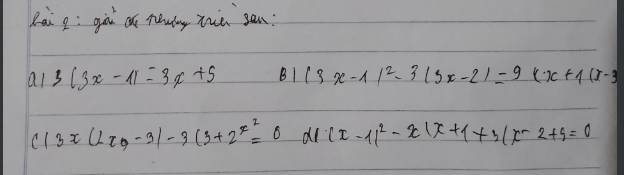 bài 2: giải các phương trình sau:
a) 3(3x - 1) = 3x + 5 B) (3x - 1)² - 3(3x - 2) = 9(x + 1(x - 3
c) 3x(2x - 3) - 3(3 + 2x² = 0 d) (x - 1)² - x(x + 1 + 3(x - 2 + 5 = 0